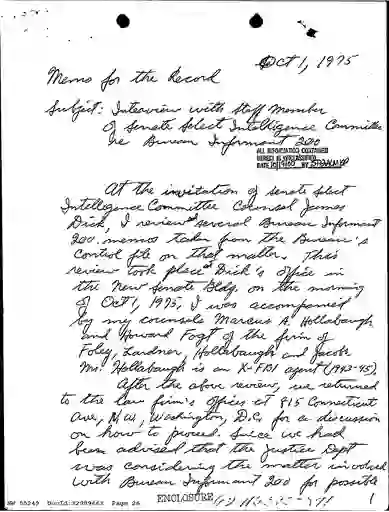 Oct 1, 1975
Memo for the Record
Subject: Interview with Staff Member
of Senate Select Intelligence Committee
re Bureau Informant 200
ALL INFORMATION CONTAINED
HEREIN IS UNCLASSIFIED
DATE BY
At the invitation of Senate Select
Intelligence Committee Counsel James
Dick, I reviewed several Bureau Informant
200 memos taken from the Bureau's
control file on that matter. This
review took place at Dick's office in
the New Senate Bldg. on the morning
of Oct 1, 1975. I was accompanied
by my counsels Marcus A. Hollabaugh
and Howard Fogt of the firm of
Foley, Lardner, Hollabaugh and Jacobs
Mr. Hollabaugh is an X-FBI agent (1942-45).
After the above review, we returned
to the law firm's offices at 815 Connecticut
Ave, N.W., Washington, D.C. for a discussion
on how to proceed. Since we had
been advised that the Justice Dept
was considering the matter involved
with Bureau Informant 200 for possible
ENCLOSURE
1
NW 55249 DocId:32989663 Page 26